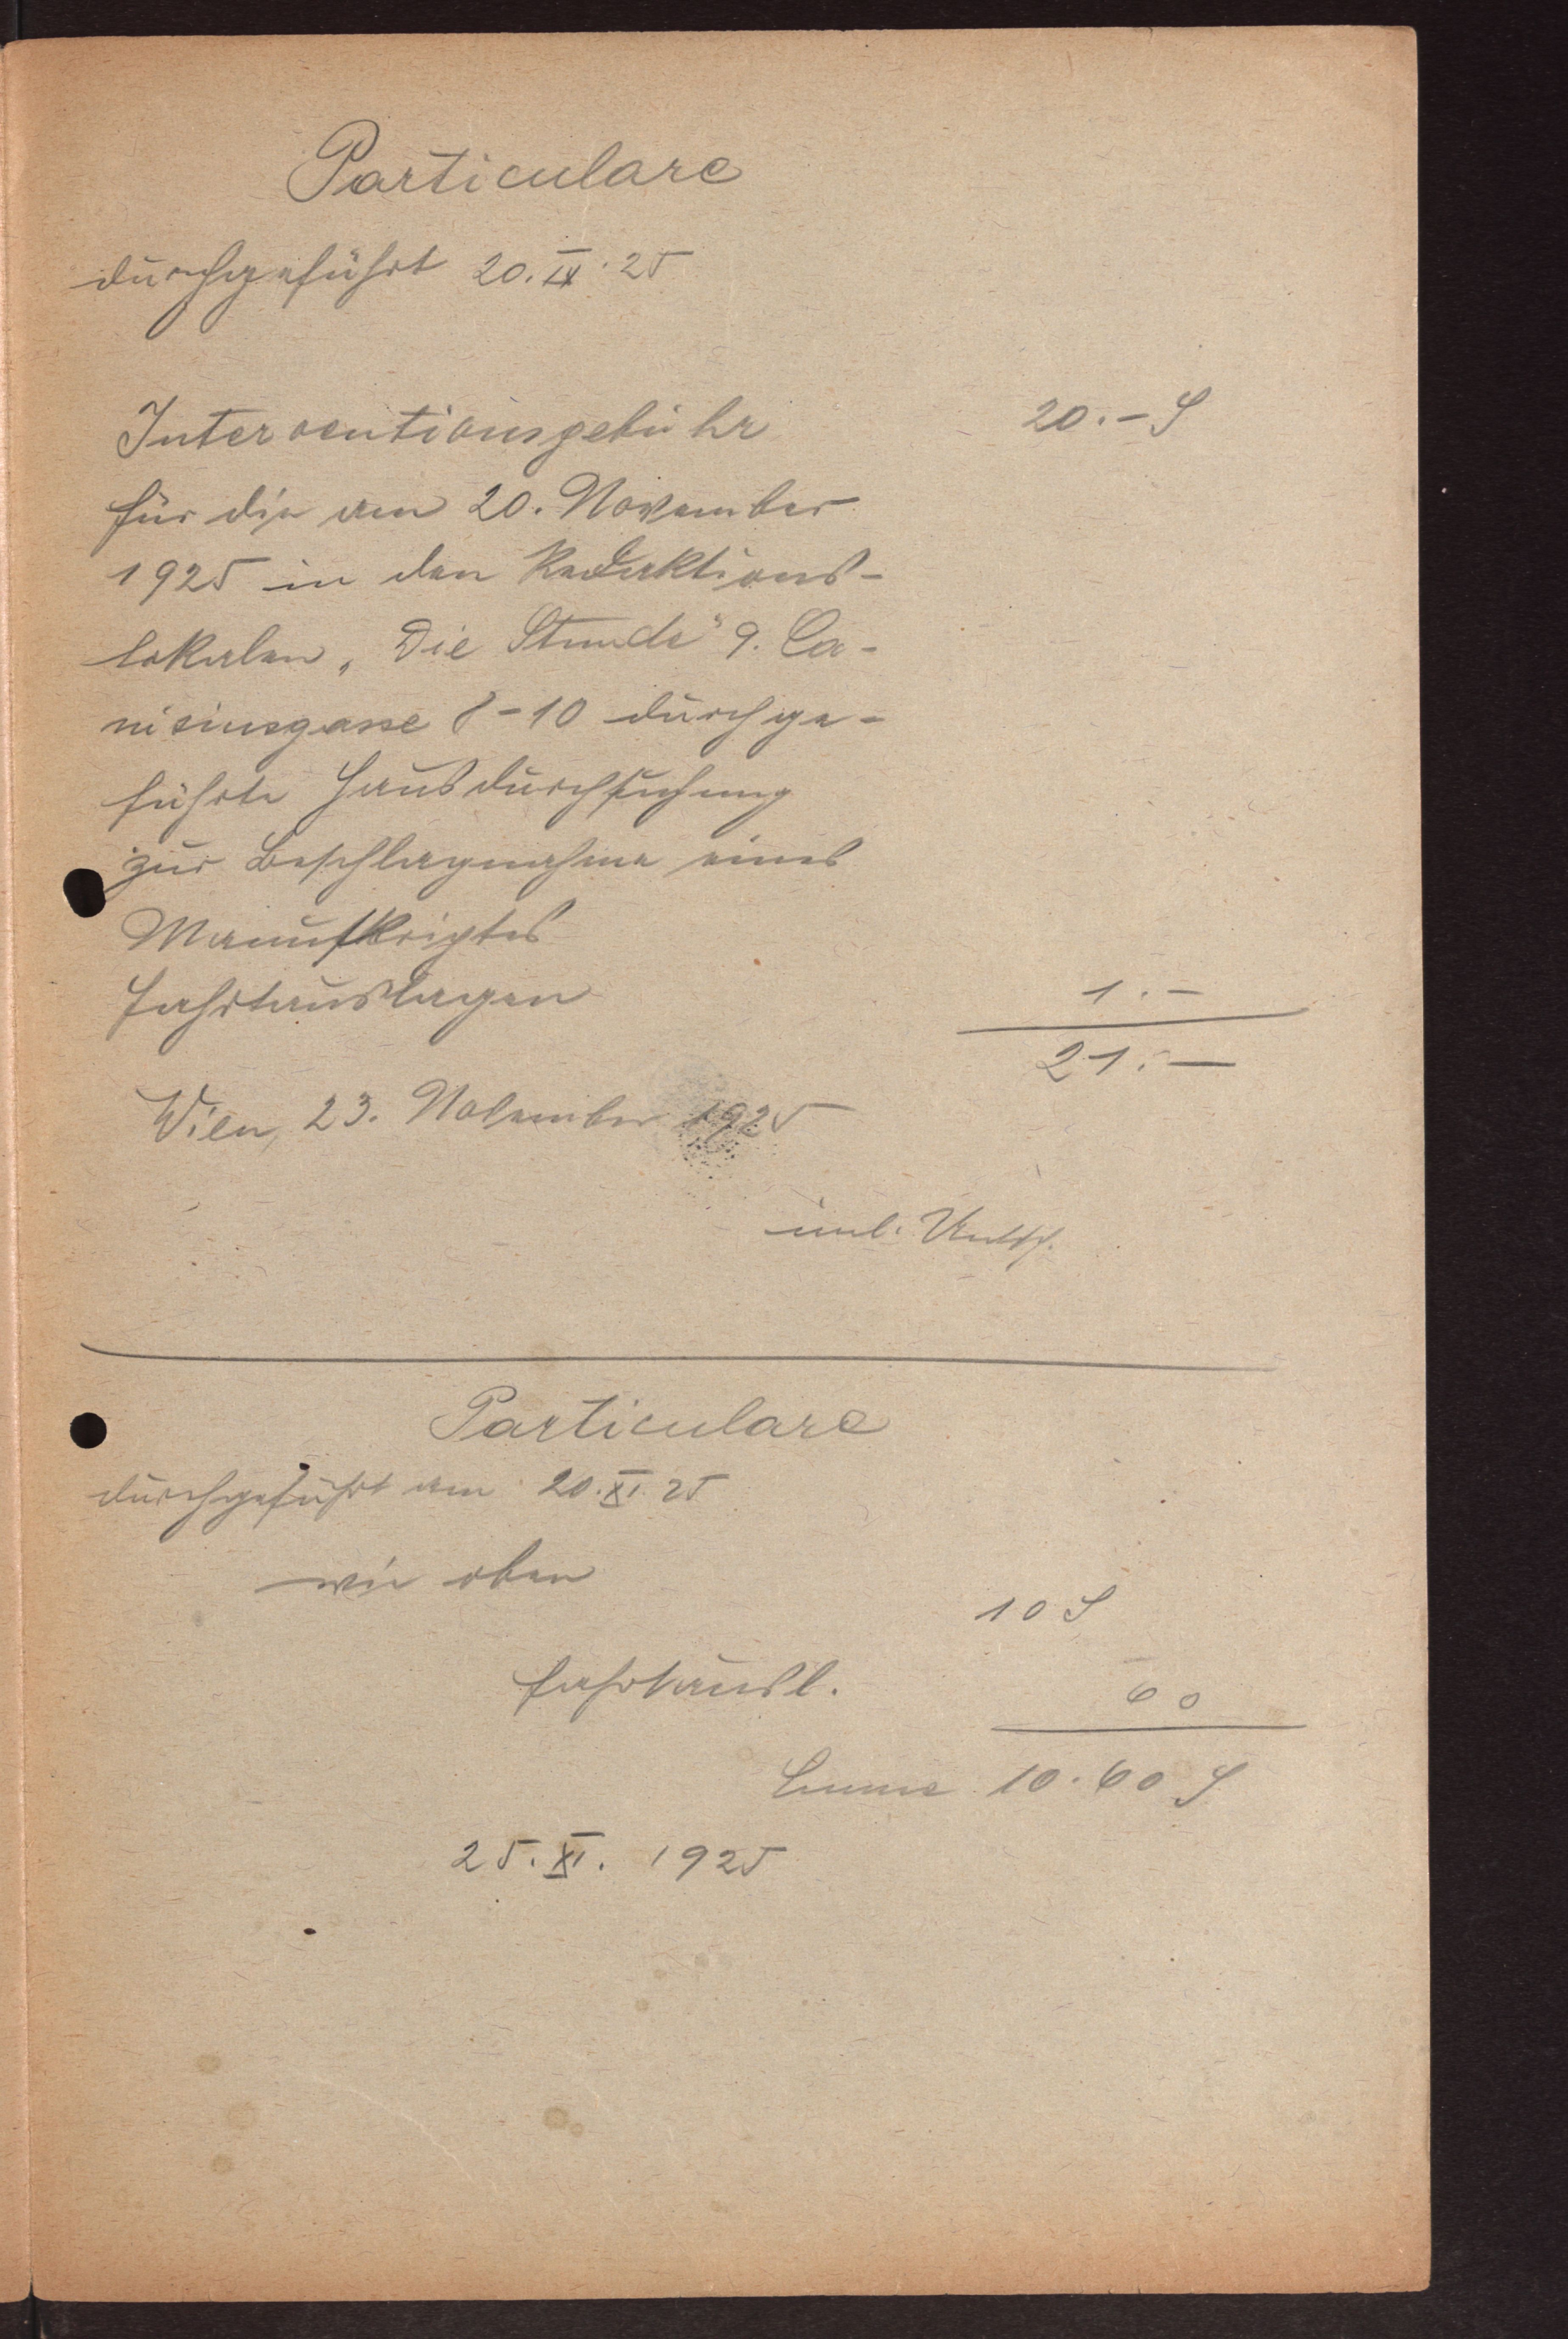 Particulare
durchgeführt 20. IX. 25
Interventionsgebühr 20.- S
für die am 20. November
1925 in den Redaktions-
lokalen „Die Stunde" 9. Ca-
nisiusgasse 8-10 durchge-
führte Hausdurchsuchung
zur Beschlagnahme eines
Manuskriptes
Fahrtauslagen 1.-
21.-
Wien, 23. November 1925
unl. Untsch.
Particulare
durchgeführt am 20. XI. 25
wie oben
10 S
Fahrtausl. 60
Summe 10.60 S
25. XI. 1925